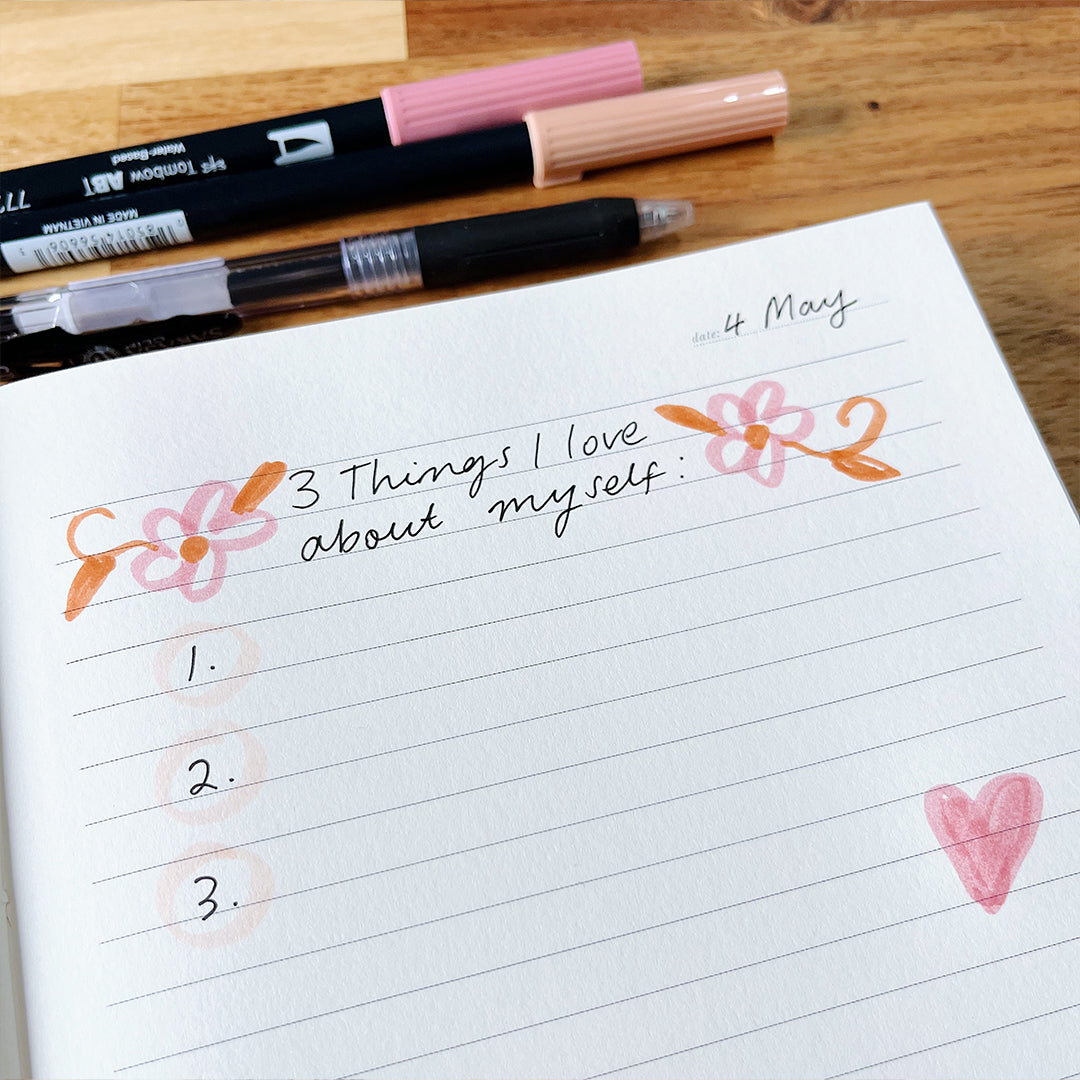 Water-Based
Tombow ABT
772
MADE IN VIETNAM
date: 4 May
3 Things I love
about myself:
1.
2.
3.